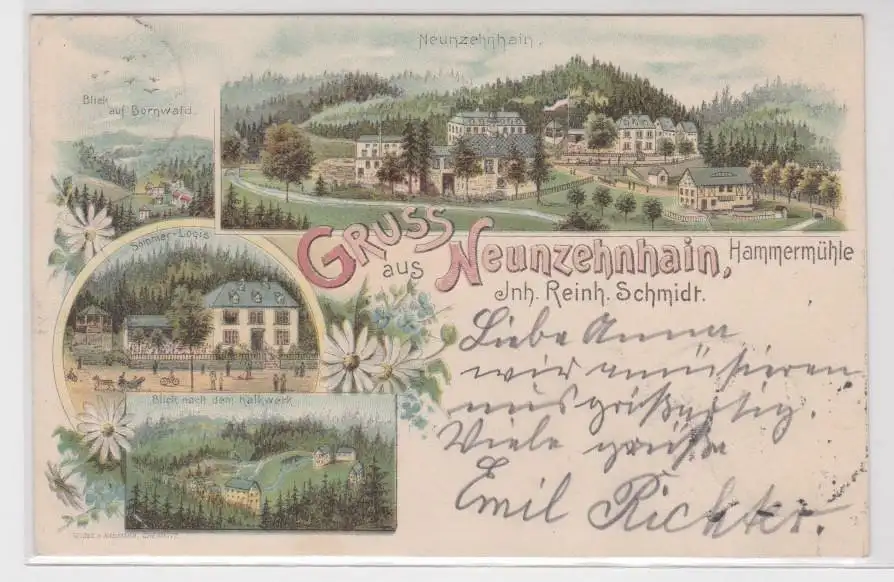 Neunzehnhain.
Blick
auf Bornwald.
Sommer-Logis
Blick nach dem Kalkwerk
Gruss
aus Neunzehnhain, Hammermühle
Jnh. Reinh. Schmidt.
Liebe Anna
wir amüsieren
uns großartig.
Viele Grüße
Emil Richter.
CHEMNITZ.